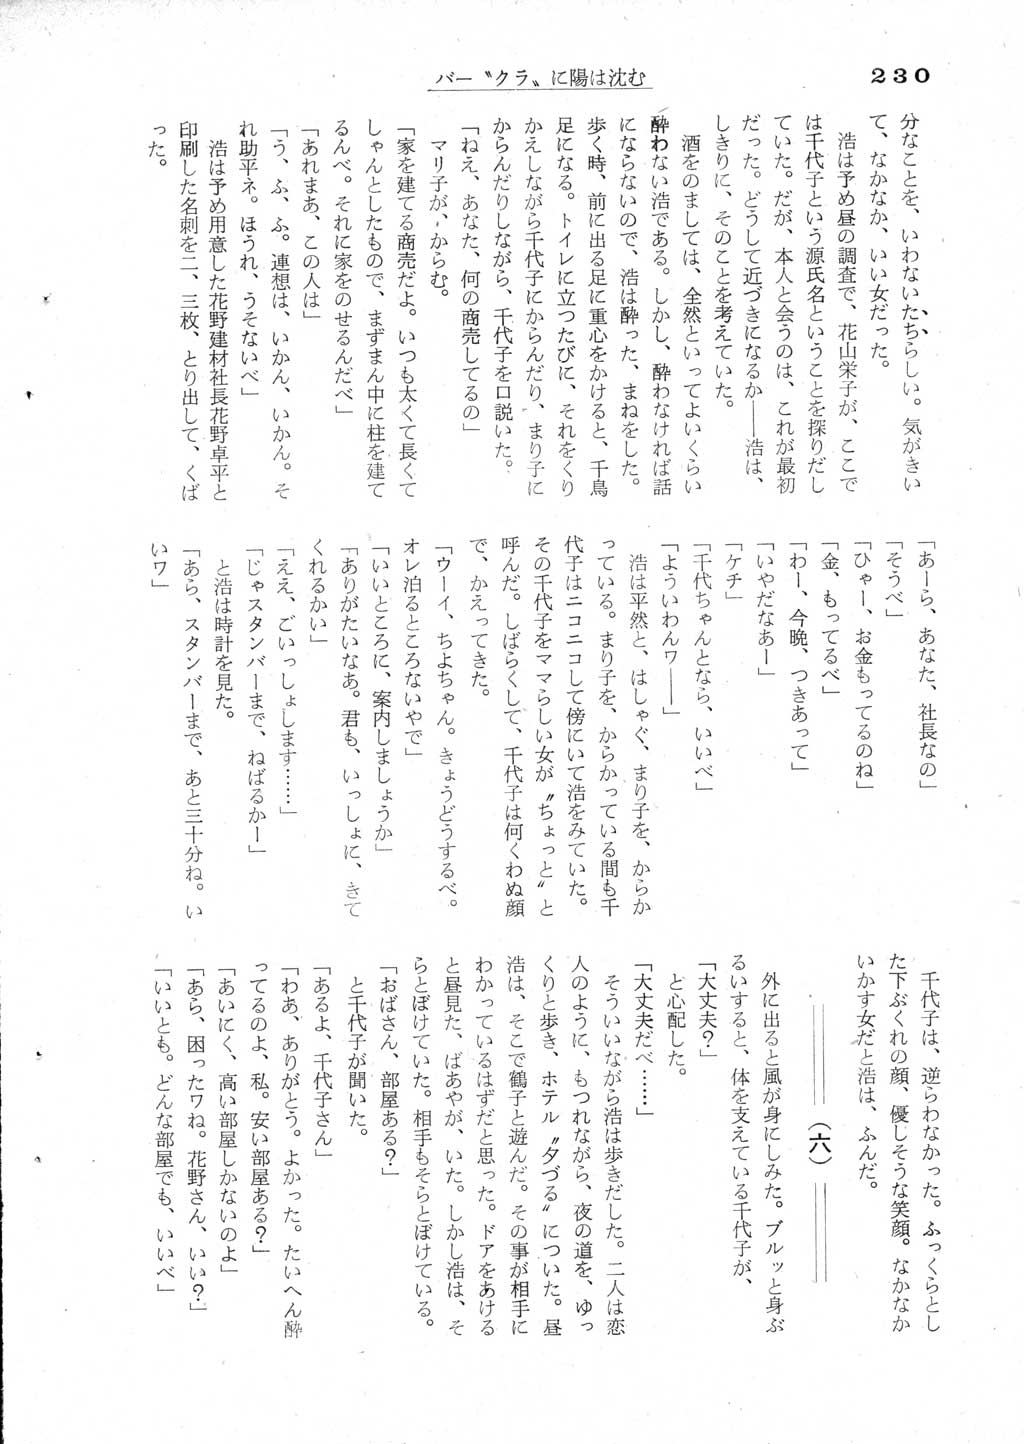 バー〝クラ〟に陽は沈む
230
分なことを、いわないたちらしい。気がきい
て、なかなか、いい女だった。
浩は予め昼の調査で、花山栄子が、ここで
は千代子という源氏名ということを探りだし
ていた。だが、本人と会うのは、これが最初
だった。どうして近づきになるか――浩は、
しきりに、そのことを考えていた。
酒をのましては、全然といってよいくらい
酔わない浩である。しかし、酔わなければ話
にならないので、浩は酔った、まねをした。
歩く時、前に出る足に重心をかけると、千鳥
足になる。トイレに立つたびに、それをくり
かえしながら千代子にからんだり、まり子に
からんだりしながら、千代子を口説いた。
「ねえ、あなた、何の商売してるの」
マリ子が、からむ。
「家を建てる商売だよ。いつも太くて長くて
しゃんとしたもので、まずまん中に柱を建て
るんべ。それに家をのせるんだべ」
「あれまあ、この人は」
「う、ふ、ふ。連想は、いかん、いかん。そ
れ助平ネ。ほうれ、うそないべ」
浩は予め用意した花野建材社長花野卓平と
印刷した名刺を二、三枚、とり出して、くば
った。
「あーら、あなた、社長なの」
「そうべ」
「ひゃー、お金もってるのね」
「金、もってるべ」
「わー、今晩、つきあって」
「いやだなあー」
「ケチ」
「千代ちゃんとなら、いいべ」
「よういわんヮ――」
浩は平然と、はしゃぐ、まり子を、からか
っている。まり子を、からかっている間も千
代子はニコニコして傍にいて浩をみていた。
その千代子をママらしい女が〝ちょっと〟と
呼んだ。しばらくして、千代子は何くわぬ顔
で、かえってきた。
「ウーイ、ちよちゃん。きょうどうするべ。
オレ泊るところないやで」
「いいところに、案内しましょうか」
「ありがたいなあ。君も、いっしょに、きて
くれるかい」
「ええ、ごいっしょします……」
「じゃスタンバーまで、ねばるかー」
と浩は時計を見た。
「あら、スタンバーまで、あと三十分ね。い
いワ」
千代子は、逆らわなかった。ふっくらとし
た下ぶくれの顔、優しそうな笑顔。なかなか
いかす女だと浩は、ふんだ。
（六）
外に出ると風が身にしみた。ブルッと身ぶ
るいすると、体を支えている千代子が、
「大丈夫？」
と心配した。
「大丈夫だべ……」
そういいながら浩は歩きだした。二人は恋
人のように、もつれながら、夜の道を、ゆっ
くりと歩き、ホテル〝夕づる〟についた。昼
浩は、そこで鶴子と遊んだ。その事が相手に
わかっているはずだと思った。ドアをあける
と昼見た、ばあやが、いた。しかし浩は、そ
らとぼけていた。相手もそらとぼけている。
「おばさん、部屋ある？」
と千代子が聞いた。
「あるよ、千代子さん」
「わあ、ありがとう。よかった。たいへん酔
ってるのよ、私。安い部屋ある？」
「あいにく、高い部屋しかないのよ」
「あら、困ったワね。花野さん、いい？」
「いいとも。どんな部屋でも、いいべ」